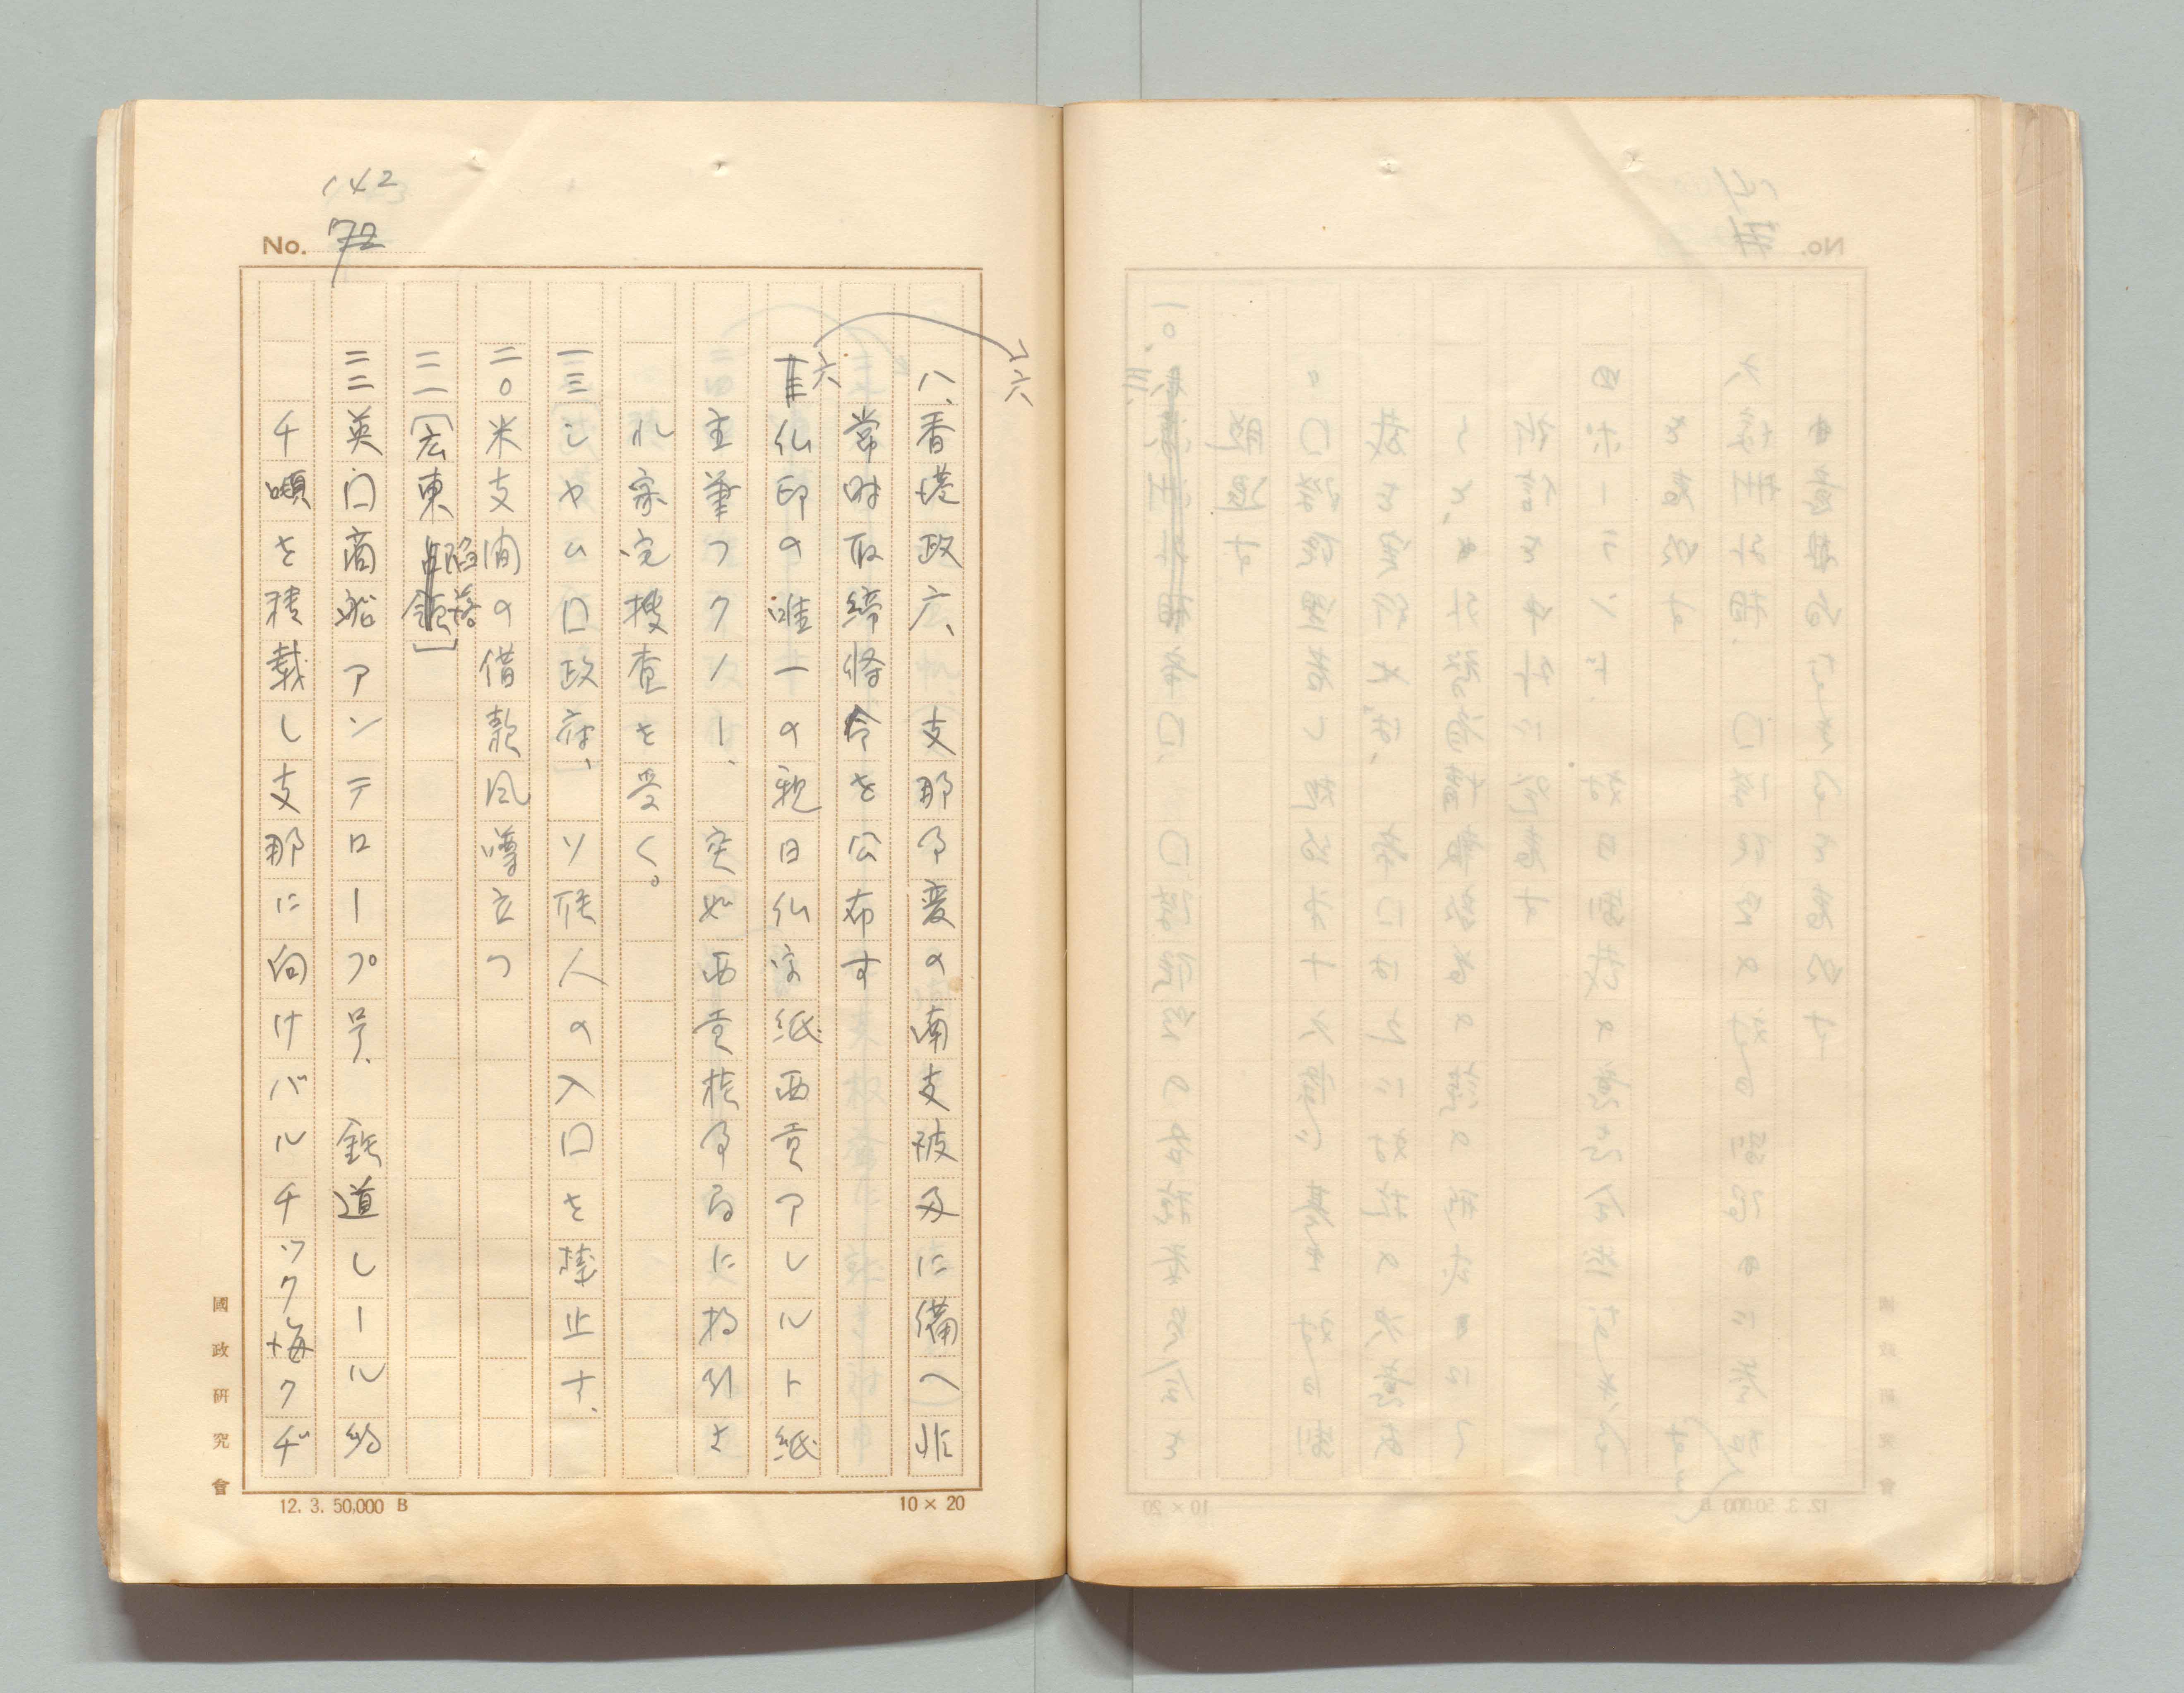 142
No. 72
八、香港政庁、支那事変の南支波及に備へ非
常時取締條令を公布す
六 仏印の唯一の親日仏字紙西貢アレルト紙
六
主筆ラクノー、突如西貢検事局に拘引さ
れ家宅捜査を受く。
一三〔シャムロ政府、ソ聯人の入口を禁止す、
二〇米支間の借款風噂立つ
二一〔広東陥落〕
二二英口商船アンテロープ号、鉄道レール約
千噸を積載し支那に向けバルチック海クヂ
國政研究會
12. 3. 50,000 B
10×20